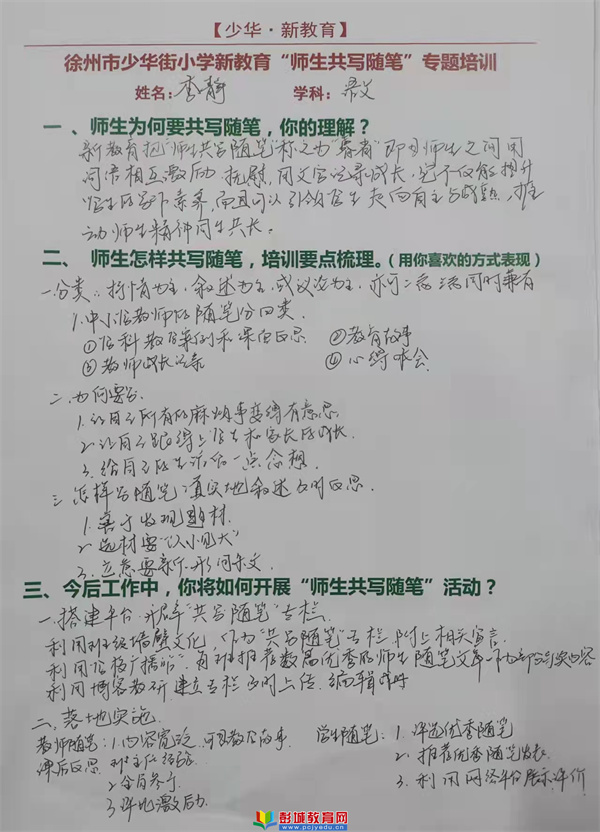 【少华·新教育】
徐州市少华街小学新教育“师生共写随笔”专题培训
姓名：李静 学科：语文
一、师生为何要共写随笔，你的理解？
新教育把“师生共写随笔”称之为“ 即为师生之间用
词语相互激励、抚慰，用文字记录成长，它不仅能提升
师生的 素养，而且可以引领 走向自主与成熟，推
动师生精神同生共长。
二、师生怎样共写随笔，培训要点梳理。（用你喜欢的方式表现）
一.分类：抒情为主，叙述为主，或议论为主，亦可二者 同时兼有
1.中小学教师的随笔分四类
①学科教学案例和课后反思 ②教育故事
③教师成长记录 ④心得体会
二.为何要写
1.让自己所有的麻烦事变得有意思
2.让自己跟得上学生和家长的成长.
3.给自己的生 一点念想.
三.怎样写随笔：真实地叙述 反思.
1.善于发现题材.
2.选材要“以小见大”
3.立意要新 形
三、今后工作中，你将如何开展“师生共写随笔”活动？
一.搭建平台.开辟“共写随笔”专栏.
利用班级墙壁文化，作为“共写随笔”专栏.附上相关宣言.
利用学校广播站”，每班推荐数篇优秀的师生随笔文章
利用博客教研.建立专栏 上传.编辑
二.落地实施.
教师随笔：1.内容宽泛.可是教学故事 学生随笔：1.评选优秀随笔
课后反思 班主任经验 2.推荐优秀随笔发表.
2.全员参与 3.利用网络平台展示评价
3.评比激励.
彭城教育网
www.pcjyedu.cn